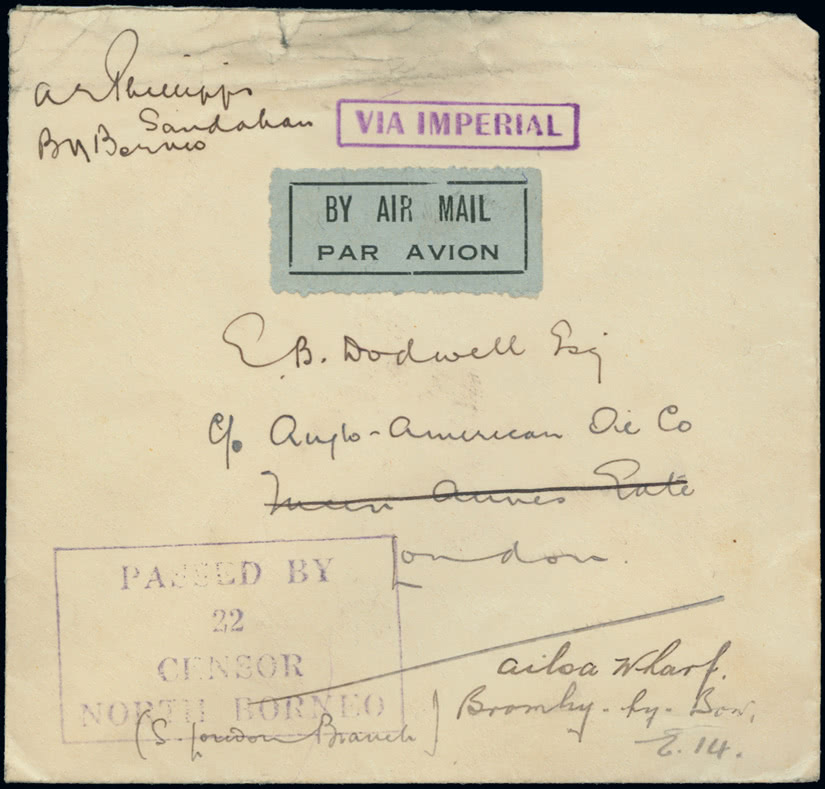 A S Phillipps
Sandakan
By Borneo
VIA IMPERIAL
BY AIR MAIL
PAR AVION
E. B. Dodwell Esq
c/o Anglo-American Oil Co
Queen Annes Gate
London.
PASSED BY
22
CENSOR
NORTH BORNEO
(S. London Branch)
Ailsa Wharf.
Bromley-by-Bow.
E. 14.